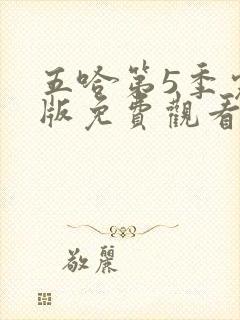 五哈第5季
版免費觀看
敬麗